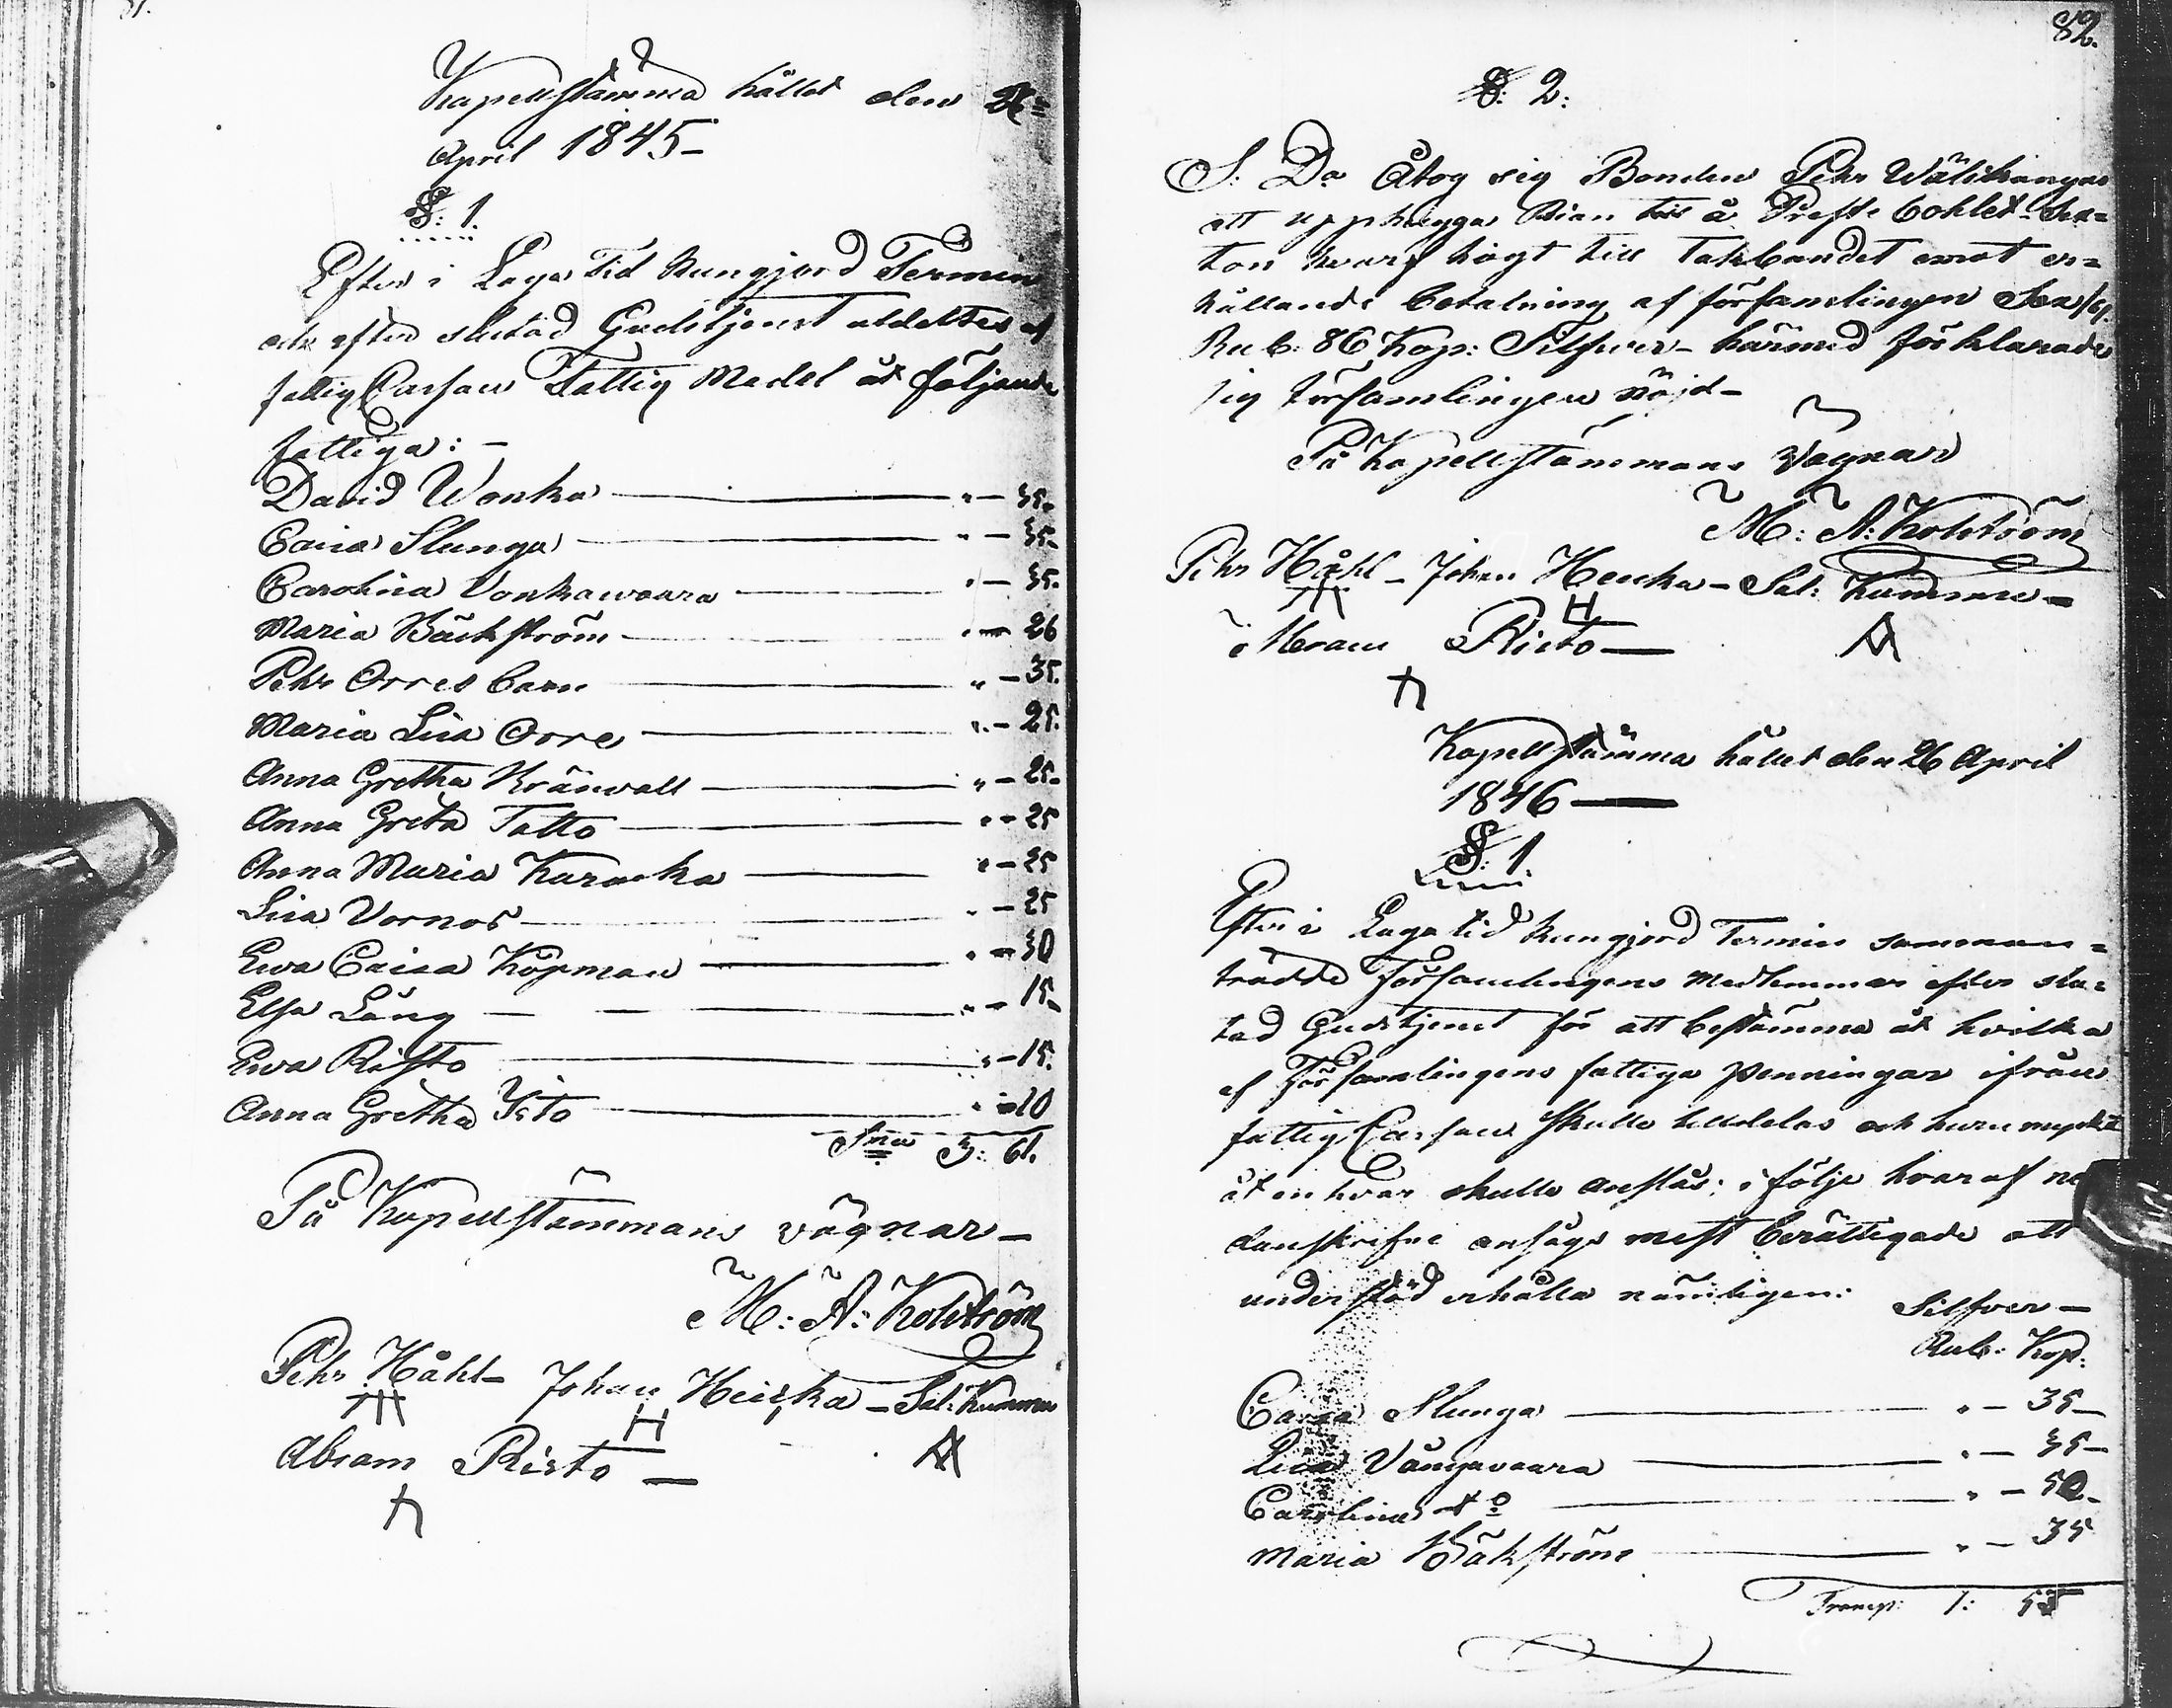 81.
Kapellstämma hållet den
April 1845-
§: 1.
Efter i Laga Tid kungjord Termin
och efter slutad Gudstjenst utdeltes af
fattig Cassan Fattig Medel åt följande
fattiga: -
David Wonka " - 35.
Caisa Slunga " - 35.
Carolina Vonkawaara " - 35.
Maria Bäckström " - 26
Pehr Orres barn " - 35.
Maria Lisa Orre " - 25.
Anna Gretha Kränvall " - 25.
Anna Greta Tatto " - 25
Anna Maria Kuraska " - 25
Lisa Vornos " - 25
Ewa Caisa Köpman " - 30
Elsa Lång " - 15.
Ewa Risto " - 15.
Anna Gretha Isto " - 10
Sma 3: 61.
På Kapellstämmans vägnar -
M: A: Kohlström
Pehr Håhl - Johan Heicka - Sal: Kummu
Abram Risto -
82.
§: 2:
S: D. Åtog sig Bonden Pehr Wälikangas
att upphugga Rian till å Preste bohlet Sex=
ton hvarf högt till Takbandet emot er=
hållande betalning af församlingen Sex /6/.
Rub: 86 Kop: Silfwer - härmed förklarade
sig församlingen nöjd -
På Kapellstämmans Vägnar
M: A: Kohlström
Pehr Håhl - Johan Heicka - Sal: Kummu -
Abram Risto -
Kapellstämma hållet den 26 April
1846 -
§: 1
Efter i Laga tid kungjord Termin samman=
trädde Församlingens Medlemmar efter slu=
tad Gudstjenst för att bestämma åt hvilka
af Församlingens fattiga penningar ifrån
fattig Cassan skulle utdelas och huru mycket
åt en hvar skulle anslås; i följe hvaraf ne
danskrifne ansågs mest berättigade att
understöd erhålla nämligen: Silfver -
Rub: Kop:
Caisa Slunga " - 35 -
Vångavaara " - 35 -
Carolina do " - 50 -
Maria Bäkström " - 35
Transp: 1: 55